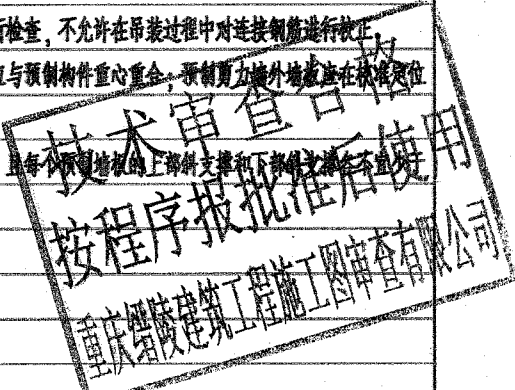 行检查，不允许在吊装过程中对连接钢筋进行校正。
与预制构件重心重合，预制剪力墙外墙板应在校准定位
且每个预制墙板的上部斜支撑和下部斜支撑各不宜少于
技术审查合格
按程序报批准后使用
重庆缙陵建筑工程施工图审查有限公司